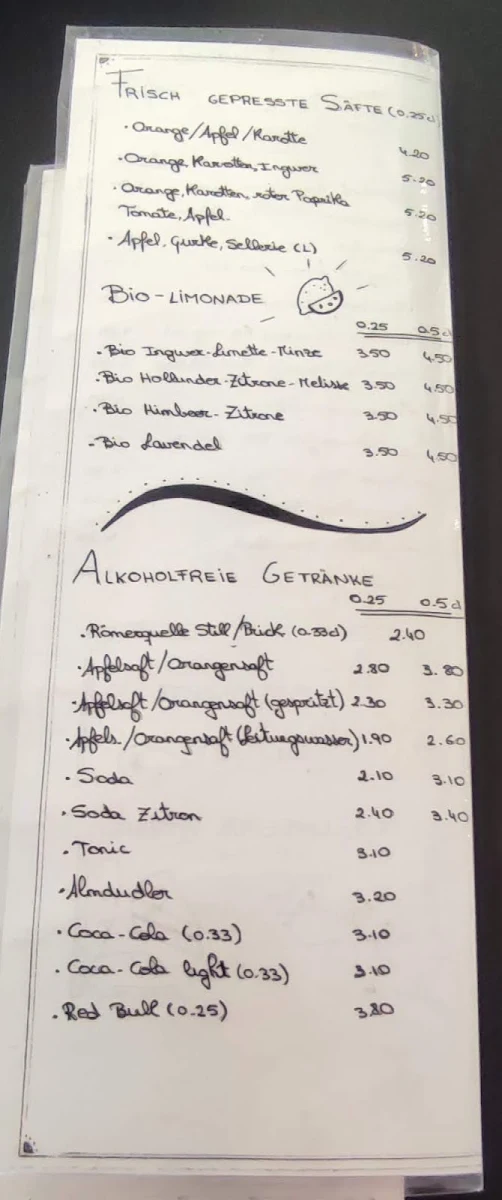 FRISCH GEPRESSTE SÄFTE (0,25l)
· Orange/Apfel/Karotte 4.20
· Orange, Karotten, Ingwer 5.20
· Orange, Karotten, roter Paprika 5.20
Tomate, Apfel.
· Apfel, Gurke, Sellerie (L) 5.20
BIO-LIMONADE
0.25 0.5l
· Bio Ingwer-Limette-Minze 3.50 4.50
· Bio Hollunder-Zitrone-Melisse 3.50 4.50
· Bio Himbeer-Zitrone 3.50 4.50
· Bio Lavendel 3.50 4.50
ALKOHOLFREIE GETRÄNKE
0.25 0.5l
· Römerquelle Still/Prick. (0.33l) 2.40
· Apfelsaft/Orangensaft 2.80 3.80
· Apfelsaft/Orangensaft (gespritzt) 2.30 3.30
· Apfels./Orangensaft (Leitungswasser) 1.90 2.60
· Soda 2.10 3.10
· Soda Zitron 2.40 3.40
· Tonic 3.10
· Almdudler 3.20
· Coca-Cola (0.33) 3.10
· Coca-Cola light (0.33) 3.10
· Red Bull (0.25) 3.80